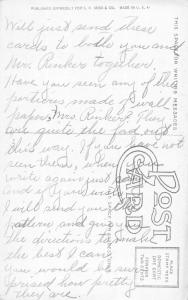 PUBLISHED EXPRESSLY FOR S. H. KRESS & CO. MADE IN U. S. A.
Will just send these
cards to both you and
Mrs Runker together.
Have you seen any of the
portieres made of wall
paper, Mrs. Runker? They
are quite the fad out
this way. If you have not
seen them, when you
write again just say
and if you wish
I will send you the
pattern and give you
the directions to make
the best I can.
You would be sur-
prised how pretty
they are.
THIS SPACE FOR WRITING MESSAGES
POST
CARD
PLACE
POSTAGE STAMP
HERE